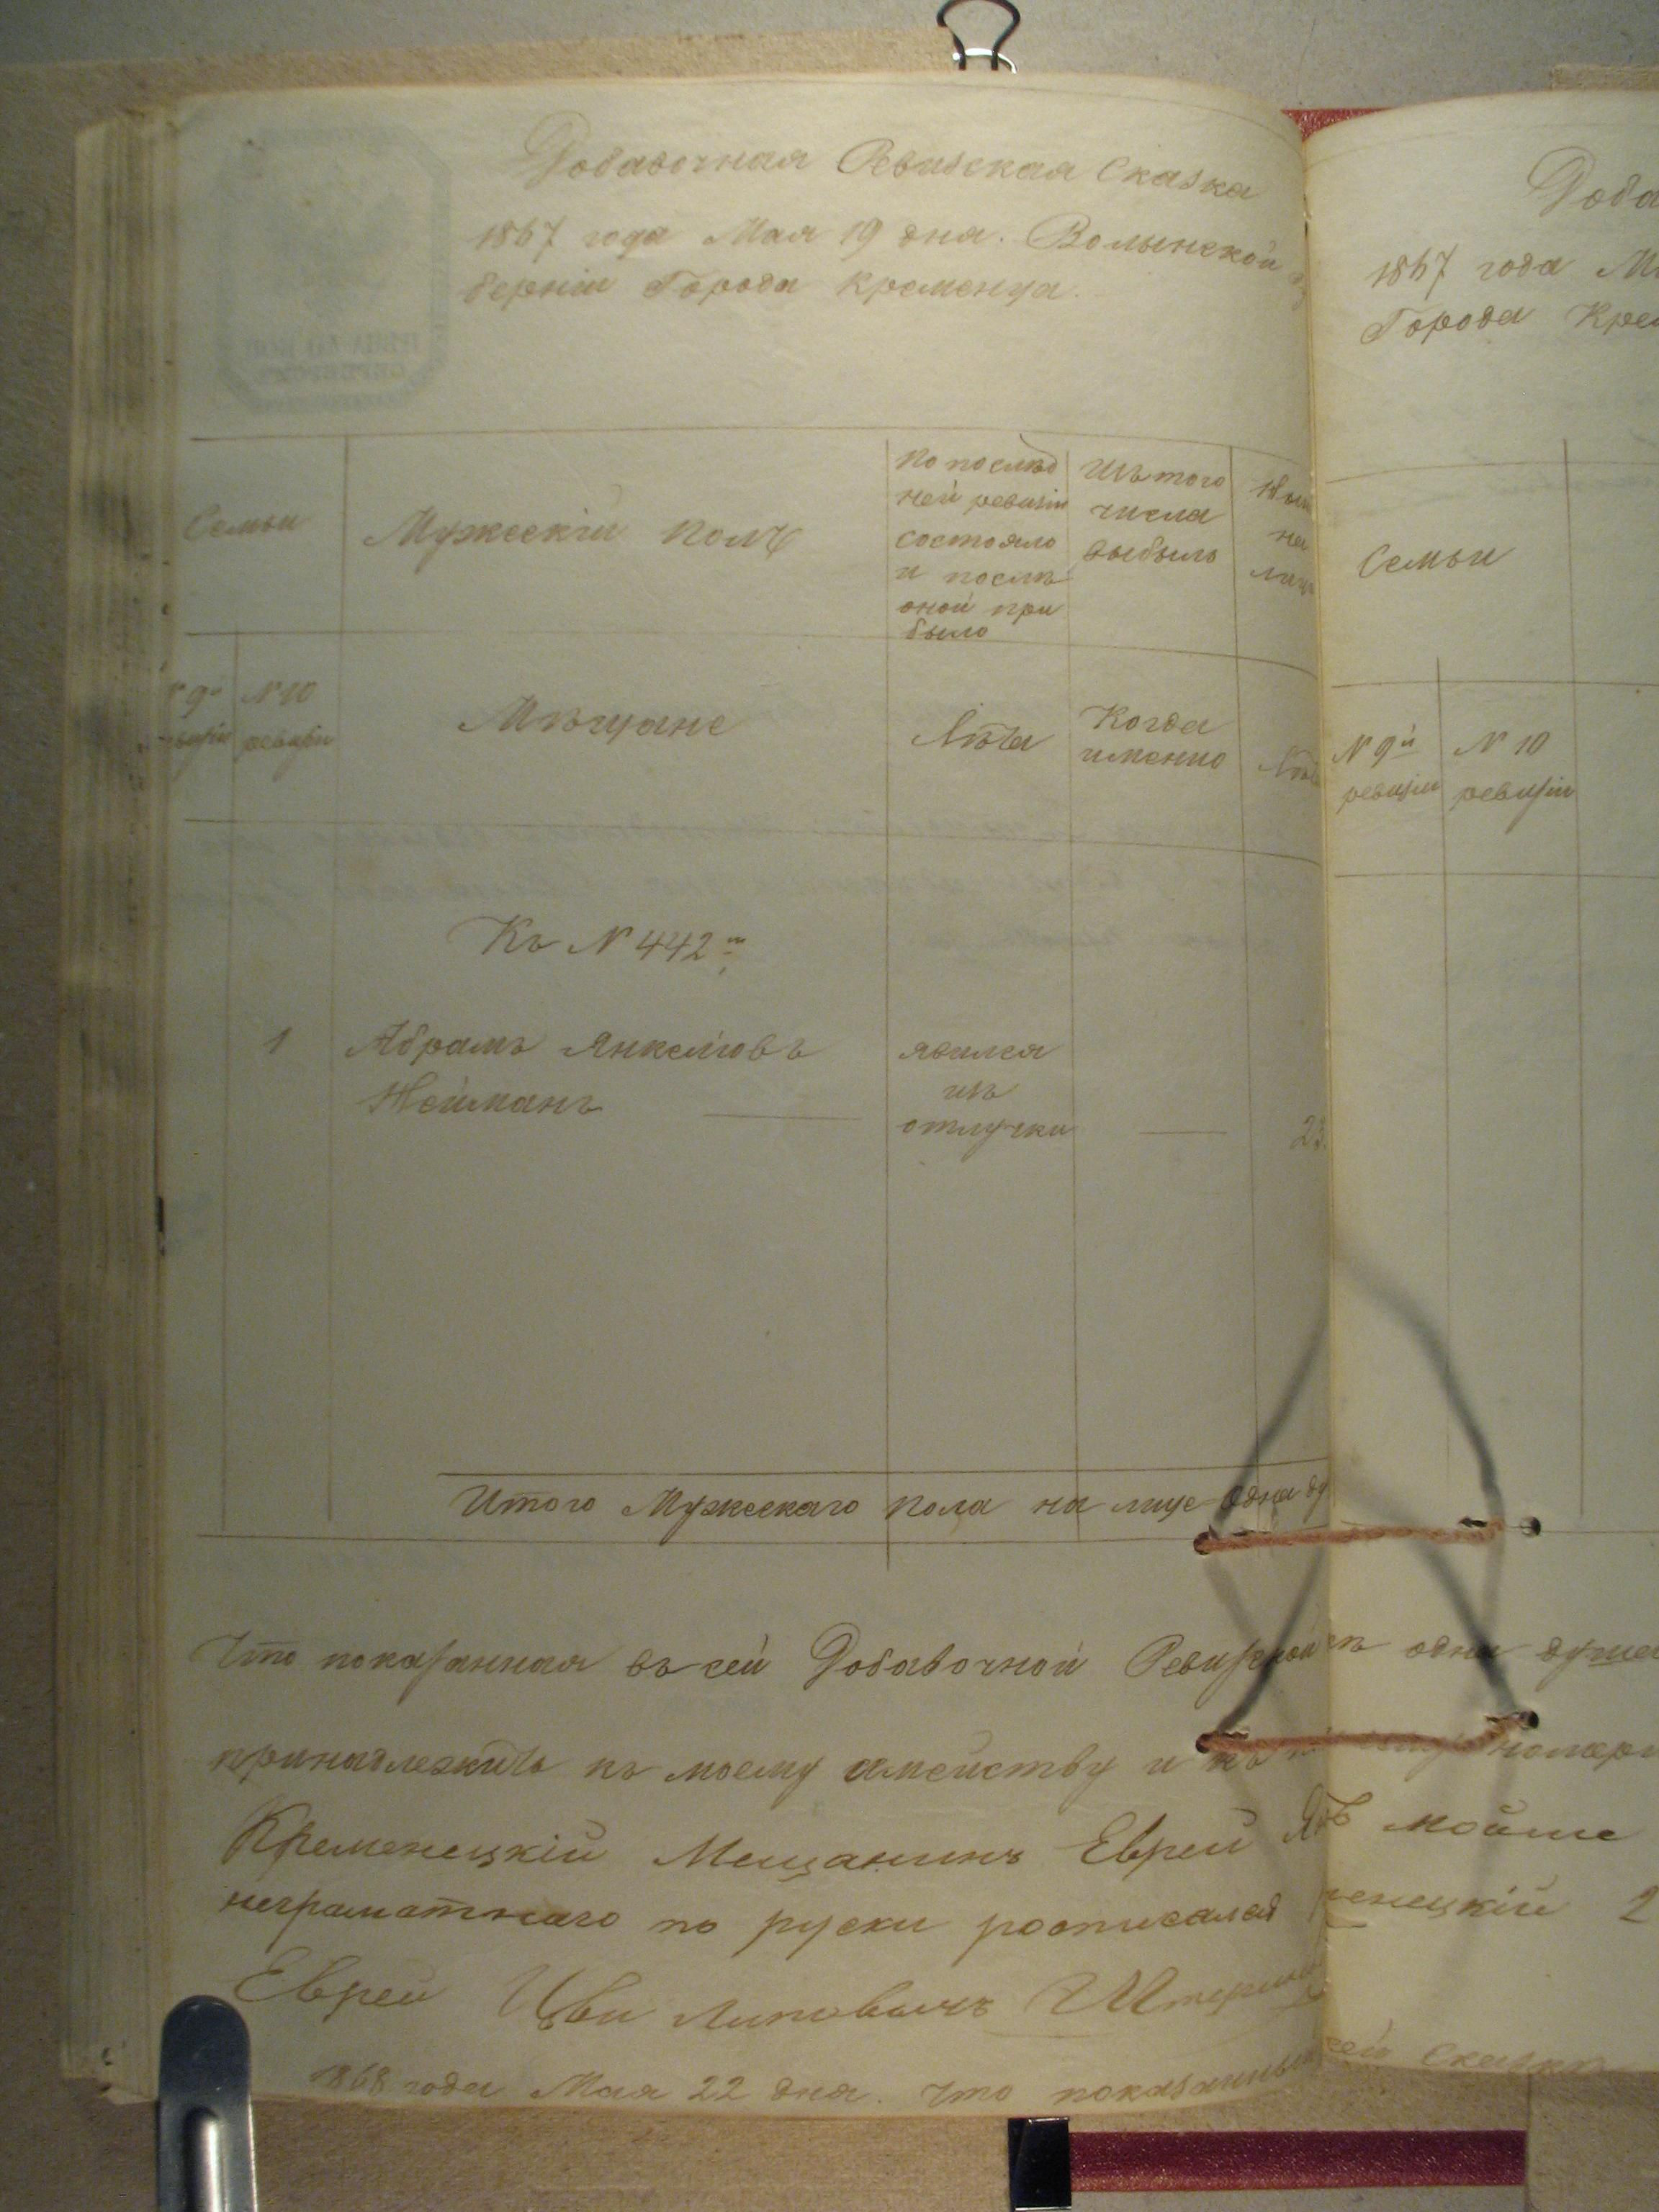 Добавочная Ревизская Сказка
1867 года Мая 19 дня. Волынской
берніи Города Кременца.
Семьи
Мужескій полъ
По послѣд
ней ревизіи
состояло
и послѣ
оной при
было
Изъ того
числа
выбыло
на
№ 10
ревизіи
Мѣщане
Лѣта
Когда
именно
Къ № 442 му
1
Абрамъ Янкелювъ
Нейманъ
явился
изъ
отлучки
23
Итого Мужескаго пола на лице одна ду
Что показанная въ сей Добавочной Ревизской
принадлежитъ къ моему семейству и
Кременецкій Мещанинъ Еврей
неграматнаго по руски росписался
Еврей Цви Липовичъ Штернъ
1868 года Мая 22 дня. Что показанны
Доба
1867 года М
Города Кре
Семьи
№ 9й
ревизіи
№ 10
ревизіи
одна душа
номеру
Мойше
енецкій 2
сей сказки